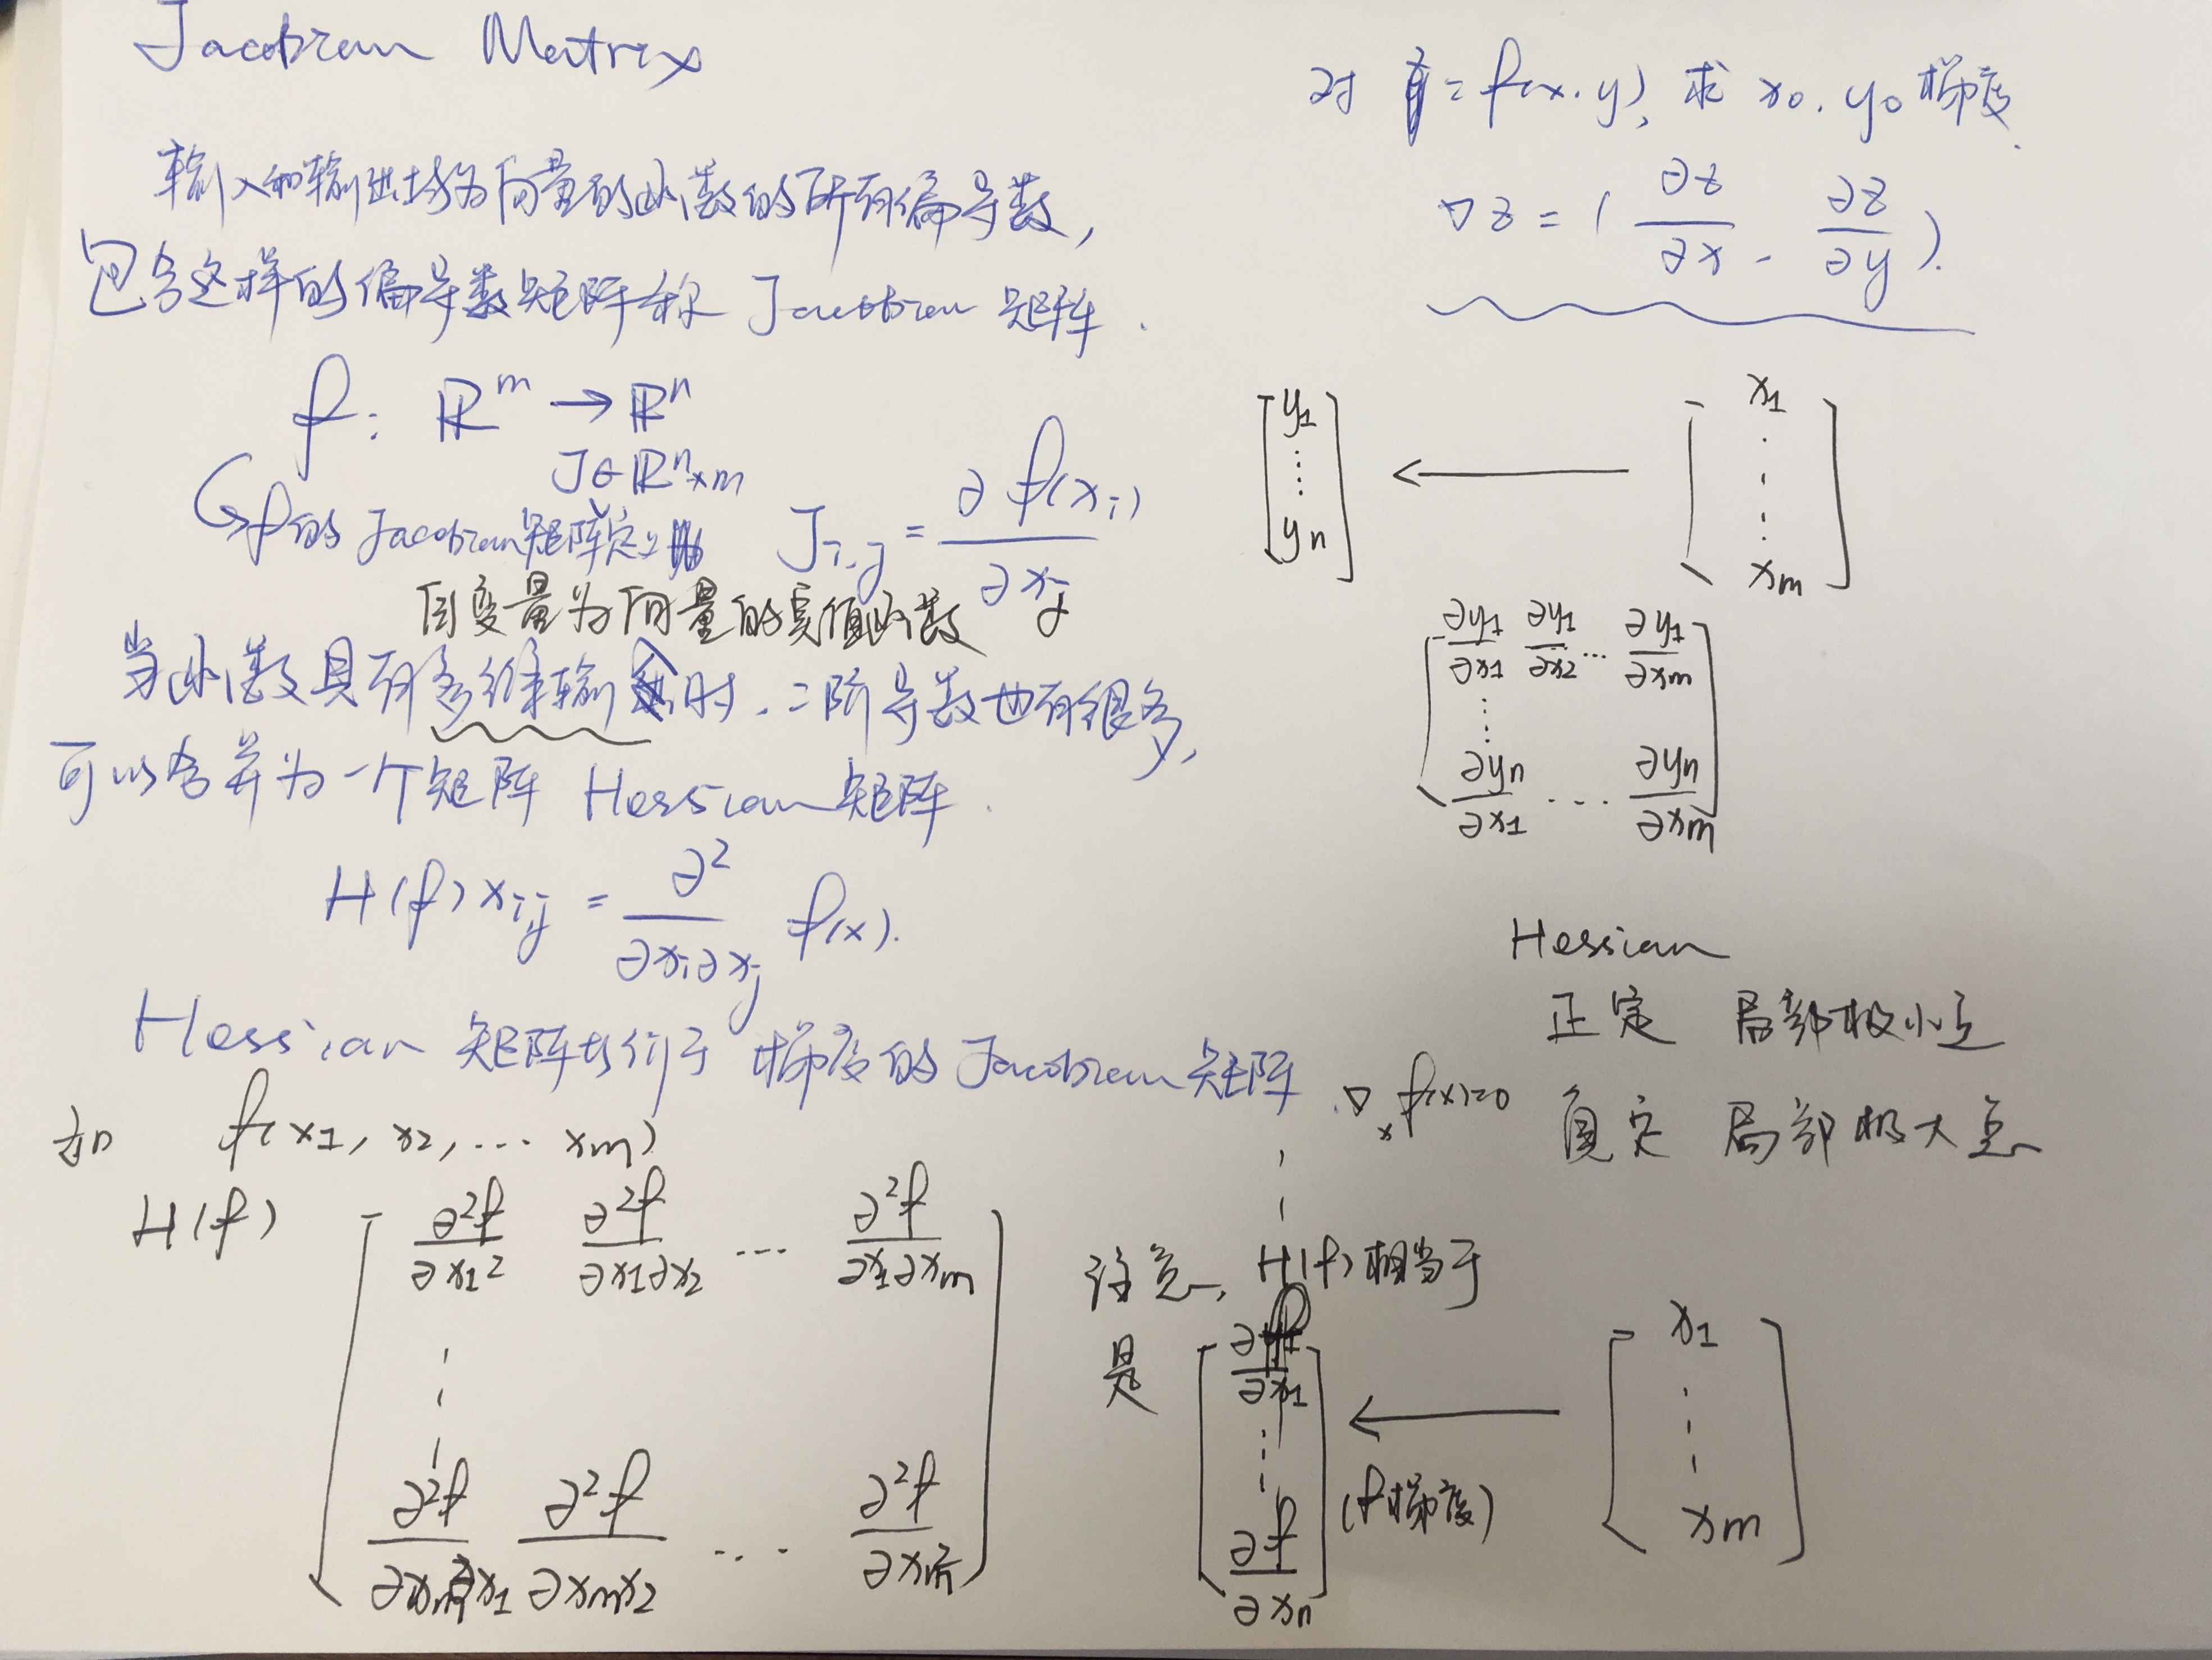 Jacobian Matrix
输入和输出均为向量的函数的所有偏导数,
包含这样的偏导数矩阵称 Jacobian 矩阵.
f: ℝ^m → ℝ^n
J∈ℝ^n×m
f的 Jacobian矩阵定义为 J_i,j = ∂f(x_i) / ∂x_j
自变量为向量的实值函数
当函数具有多维输入时,二阶导数也有很多,
可以合并为一个矩阵 Hessian矩阵.
H(f)x_ij = ∂² / ∂x_i∂x_j f(x).
Hessian 矩阵等价于 梯度的 Jacobian 矩阵.
如 f(x1, x2, ... xm)
H(f) [ ∂²f/∂x1² ∂²f/∂x1∂x2 ... ∂²f/∂x1∂xm
⋮
∂²f/∂xm∂x1 ∂²f/∂xmx2 ... ∂²f/∂xm² ]
对 = f(x.y), 求 x0.y0 梯度.
∇z = ( ∂z/∂x, ∂z/∂y ).
[ y1 ⋮ yn ] ← [ x1 ⋮ xm ]
[ ∂y1/∂x1 ∂y1/∂x2 ... ∂y1/∂xm
⋮
∂yn/∂x1 ... ∂yn/∂xm ]
Hessian
正定 局部极小点
∇_x f(x)=0 负定 局部极大点
注意, H(f)相当于
是 [ ∂f/∂x1 ⋮ ∂f/∂xn ] ← [ x1 ⋮ xm ]
(f梯度)